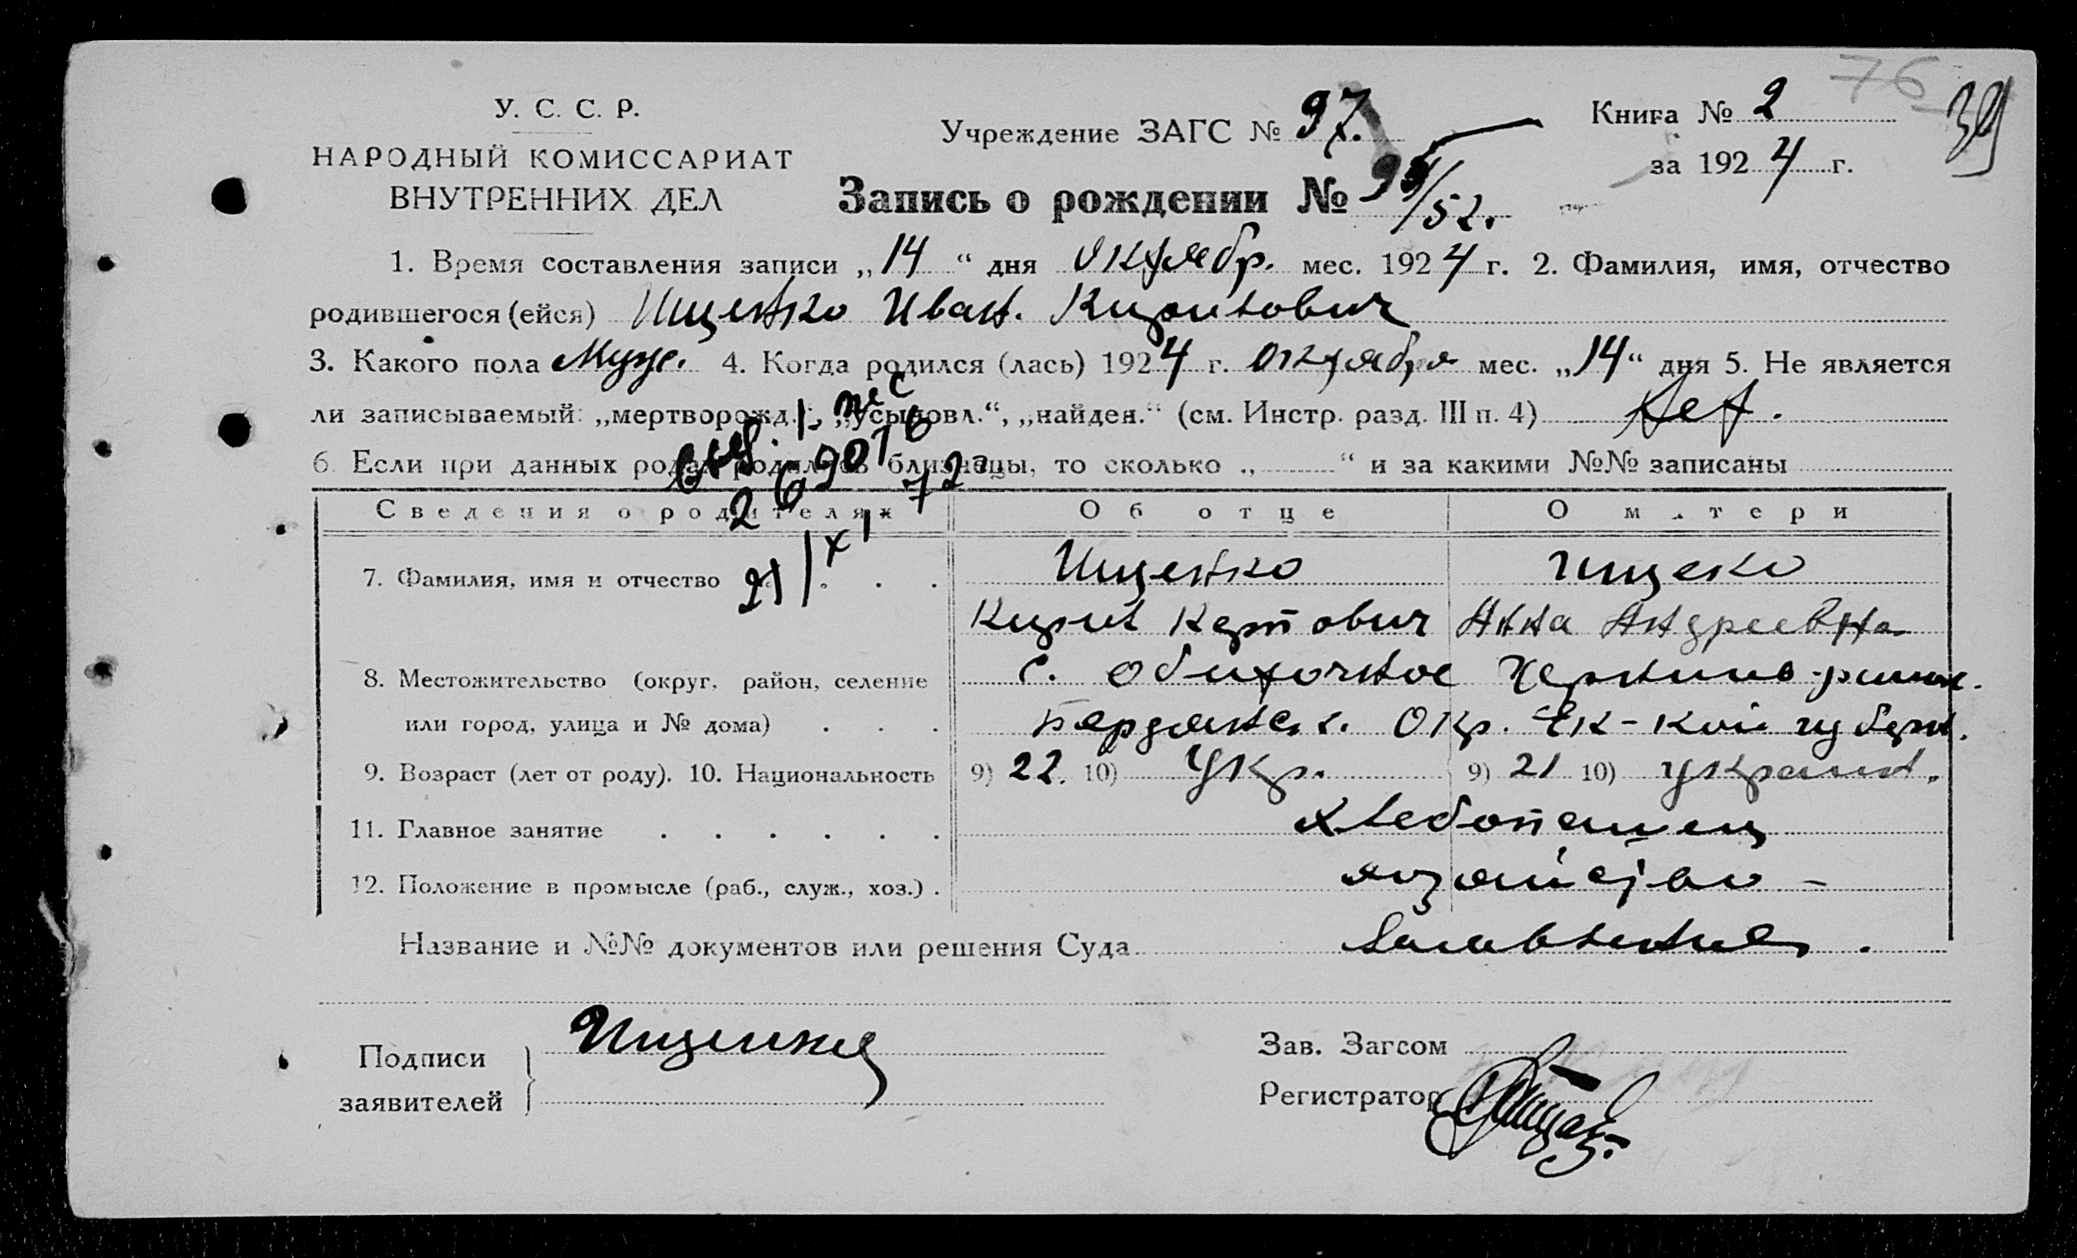 76
39
У. С. С. Р.
НАРОДНЫЙ КОМИССАРИАТ
ВНУТРЕННИХ ДЕЛ
Учреждение ЗАГС № 97.
Книга № 2
за 1924 г.
Запись о рождении № /52.
1. Время составления записи „14“ дня Октябр. мес. 1924 г. 2. Фамилия, имя, отчество
родившегося (ейся) Ищенко Иван.
3. Какого пола Муж. 4. Когда родился (лась) 1924 г. октября мес. „14“ дня 5. Не является
ли записываемый: „мертворожд.“, „усыновл.“, „найден.“ (см. Инстр. разд. III п. 4) Нет.
6. Если при данных родах родились близнецы, то сколько „ “ и за какими №№ записаны
Сведения о родителях Об отце О матери
7. Фамилия, имя и отчество . . . Ищенко Ищеко
Анна Андреевна
8. Местожительство (округ, район, селение с. Обиточное
или город, улица и № дома) . . . Бердянск. Окр. Ек-кой губерн.
9. Возраст (лет от роду). 10. Национальность 9) 22. 10) Укр. 9) 21 10) Украин.
11. Главное занятие . . . . . . хлебопашец
12. Положение в промысле (раб., служ., хоз.) .
Название и №№ документов или решения Суда
Подписи
заявителей
Ищенко
Зав. Загсом
Регистратор